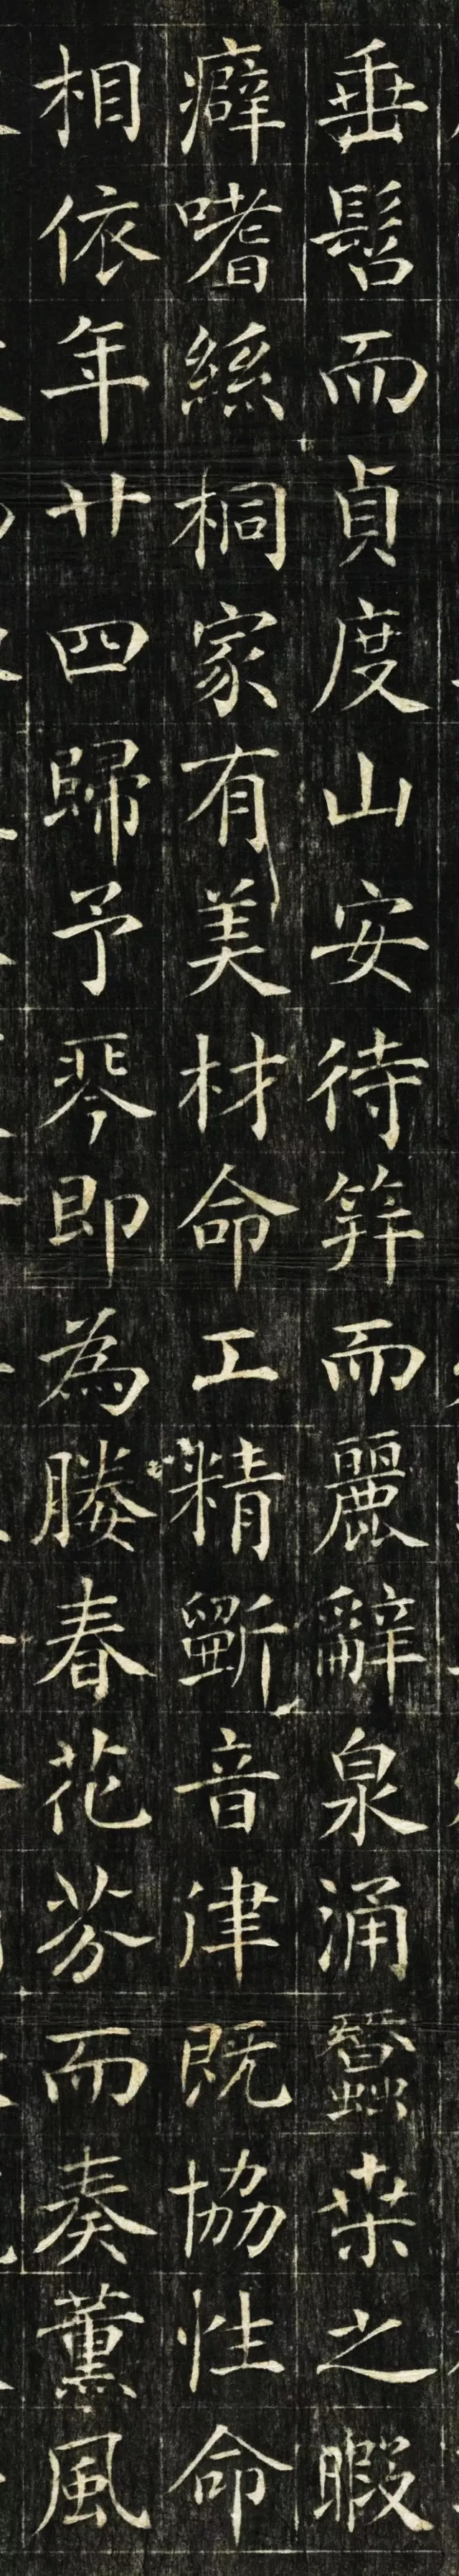 垂髫而貞度山安待筓而麗辭泉涌蠶桒之暇
癖嗜絲桐家有美材命工精斲音律既協性命
相依年廿四歸予琴即為媵春花芬而奏薰風